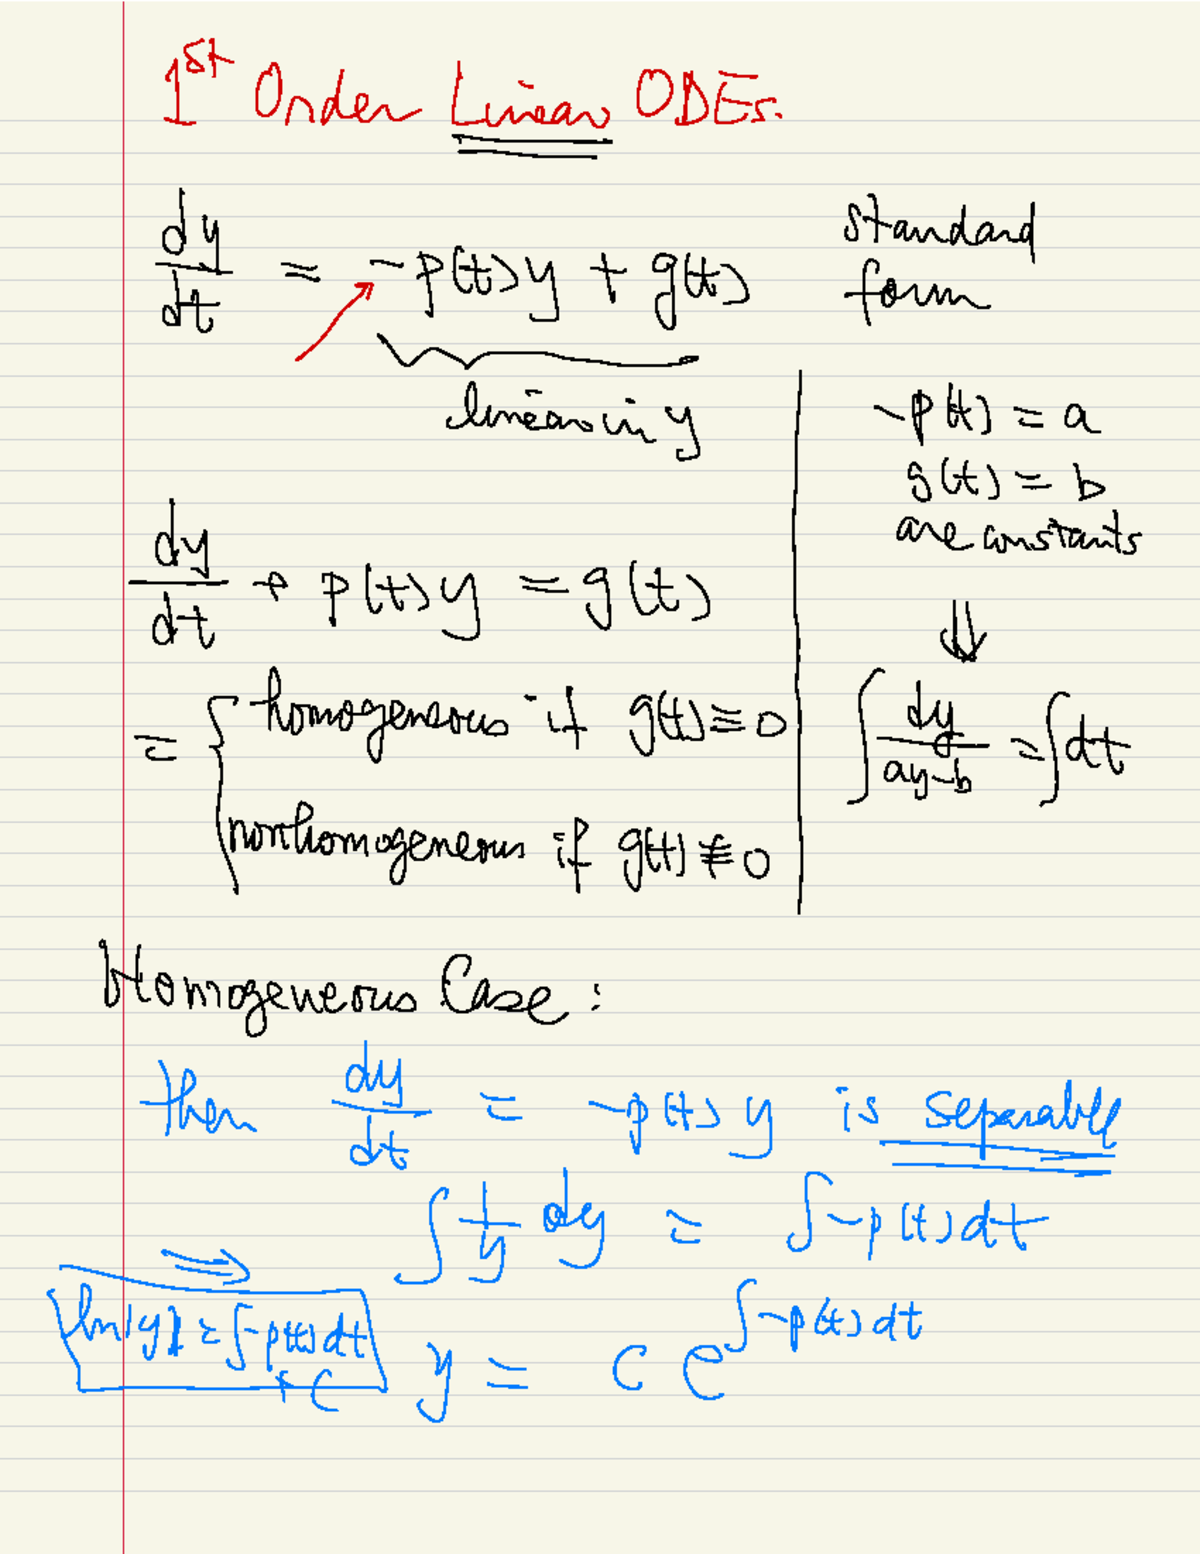 1st Order Linear ODEs.
dy/dt = -p(t)y + g(t) standard form
linear in y
-p(t) = a
g(t) = b
are constants
⇓
∫ dy/(ay-b) = ∫dt
dy/dt + p(t)y = g(t)
= { homogeneous if g(t) ≡ 0
nonhomogeneous if g(t) ≢ 0
Homogeneous Case:
then dy/dt = -p(t)y is separable
∫ 1/y dy = ∫-p(t)dt
⇒
ln|y| = ∫-p(t)dt + C
y = c e^{∫-p(t)dt}